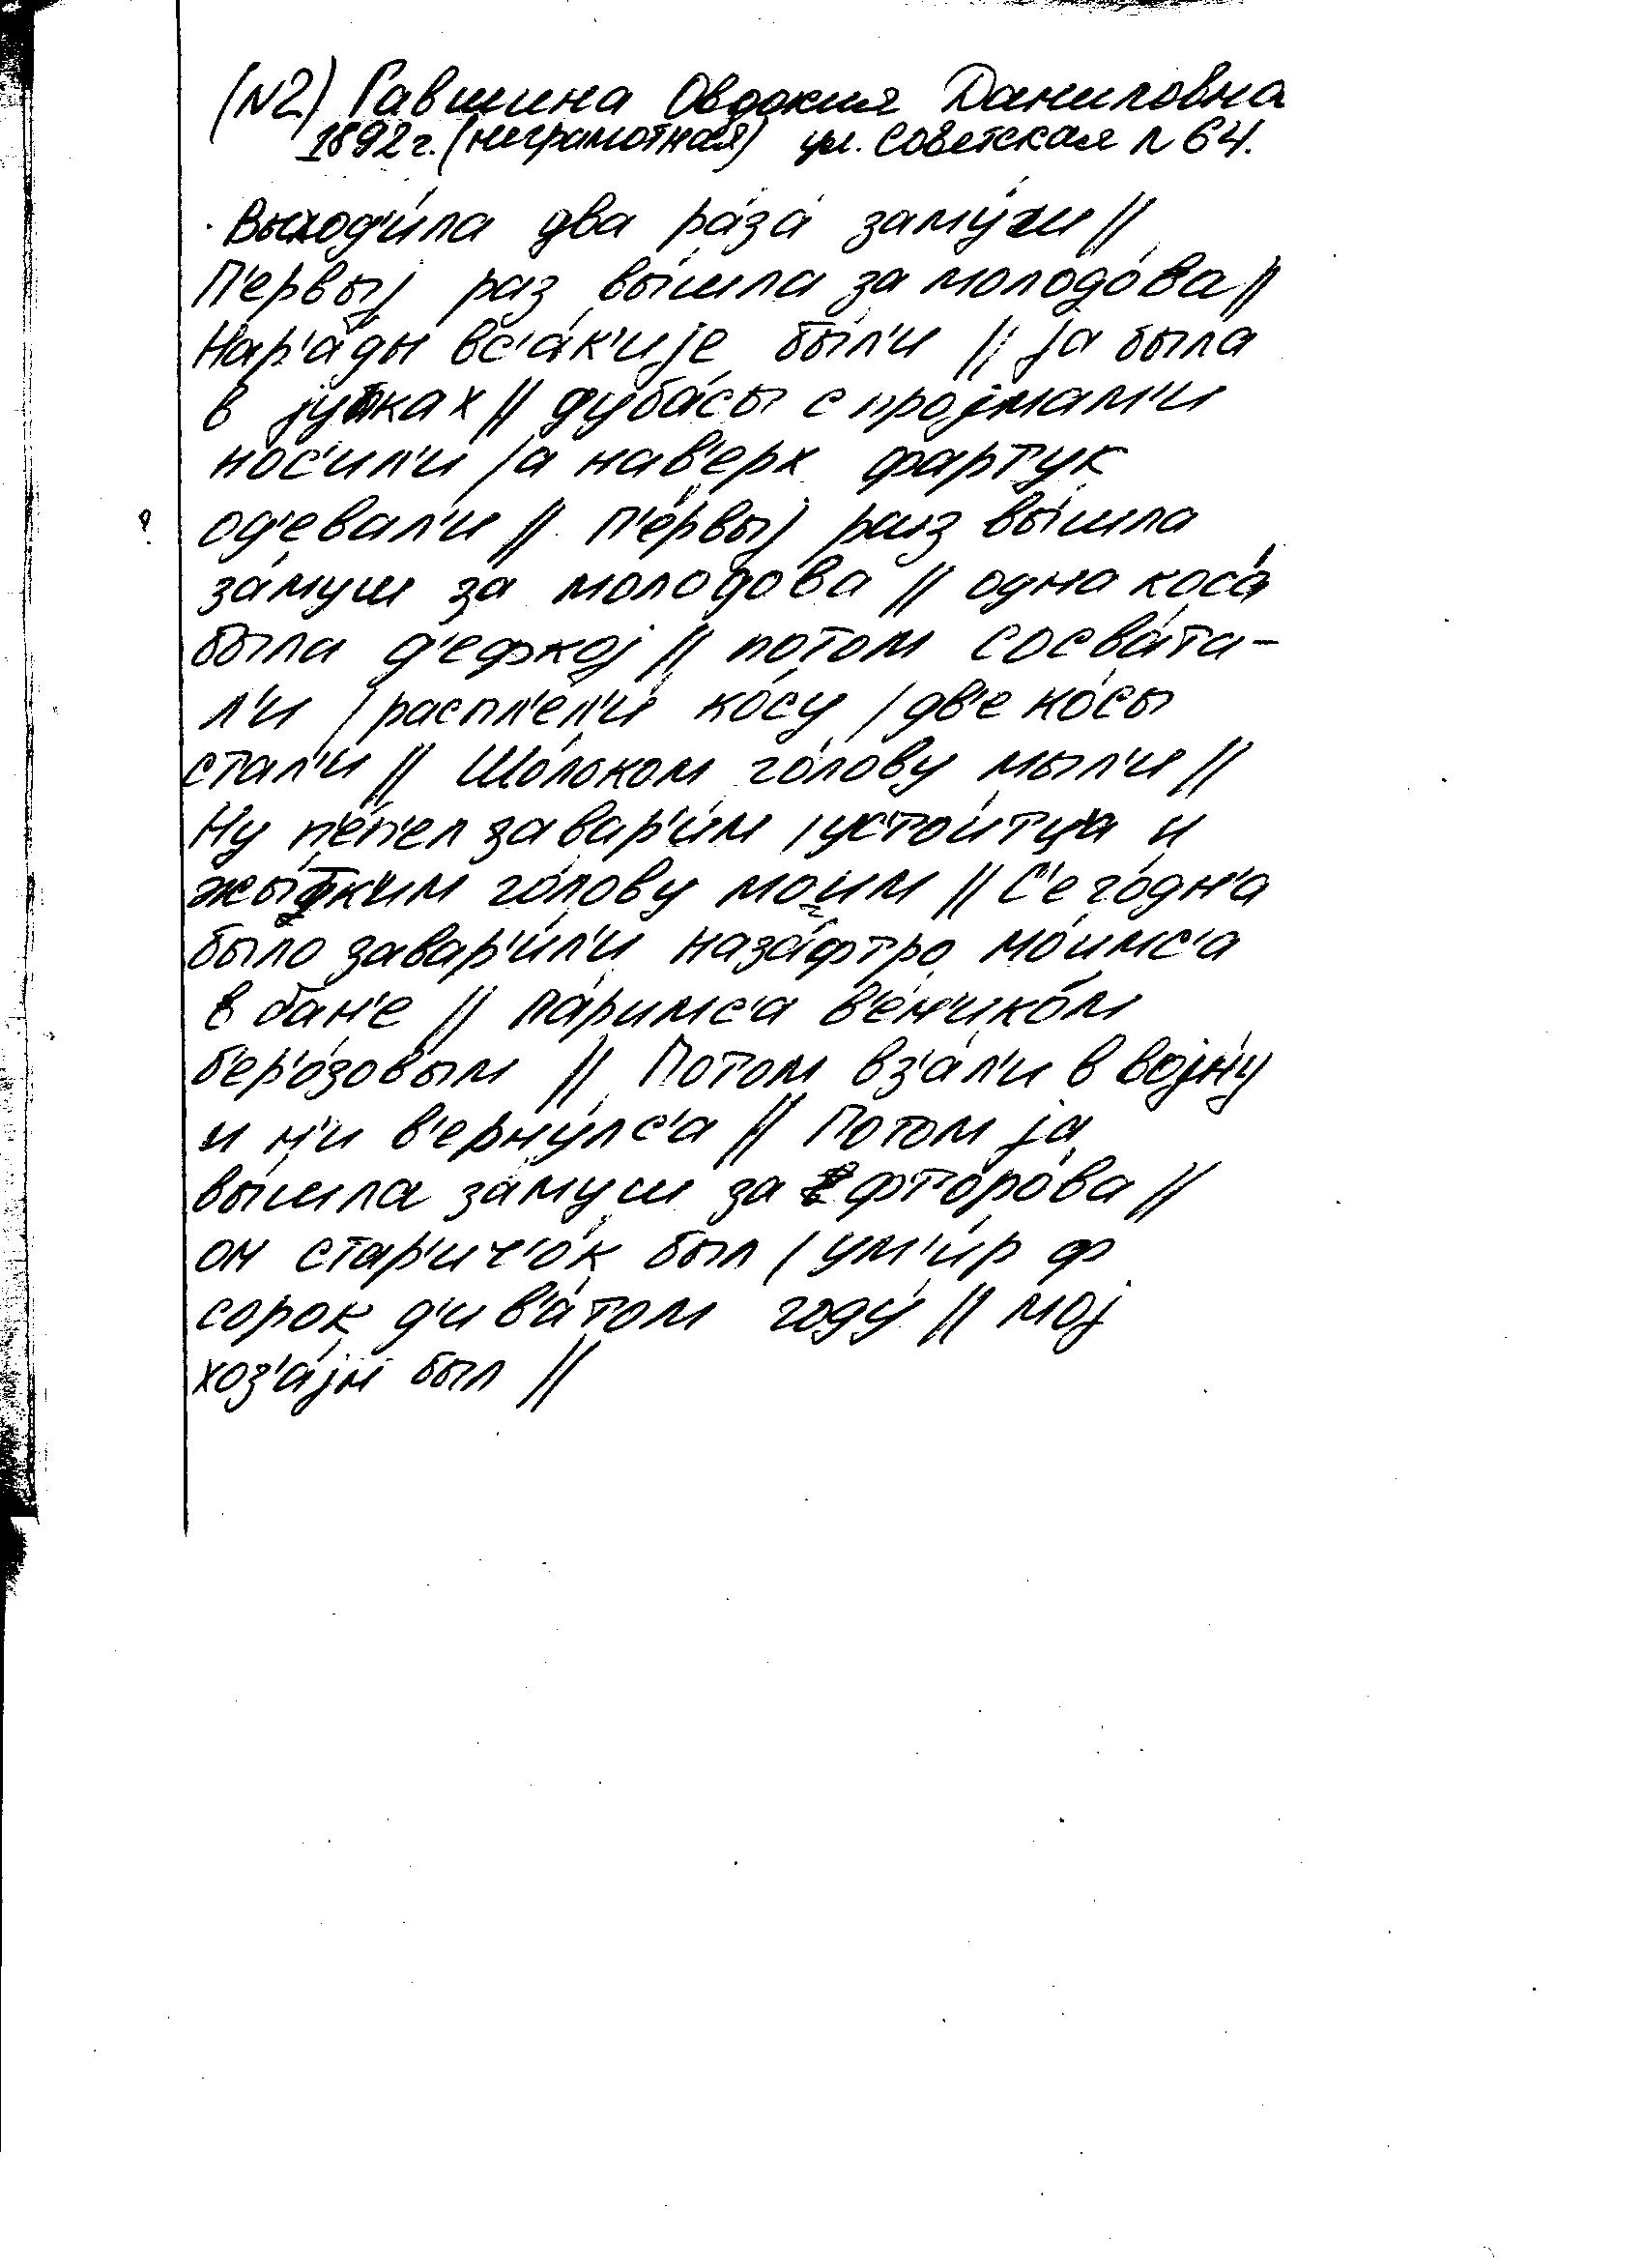 (N2) Гавшина Овдокия Даниловна
1892 г. (неграмотная) ул. Советская N 64.
Выход'и́ла два ра́за́ заму́жи //
П'ервыj раз вы́шла за молодо́ва //
Нар'а́ды вс'а́к'иjе бы́л'и // jа была
в jупках // дуба́сы с проjмам'и
нос'ил'и / а нав'ерх фартук
од'ева́л'и // П'е́рвыj раз вы́шла
за́муш за молодо́ва // одна коса́
была д'ефкоj // потом сосва́та-
л'и / распл'ел'и́ ко́су / дв'е ко́сы
ста́л'и // Шо́локом го́лову мыл'и //
Ну п'е́п'ел завар'и́м / устои́тца и
жы́тк'им го́лову моим // С'его́дн'а
было завар'ил'и наза́фтро мо́имс'а
в бан'е // па́римс'а в'е́н'ико́м
б'ер'о́зовым // Потом вз'а́л'и в воjну́
и н'и в'ерну́лс'а // Потом jа
вы́шла за́муш за фторо́ва //
он стар'ич'о́к был / ум'и́р ф
сорок д'ив'а́том году́ // моj
хоз'а́jн был //
?